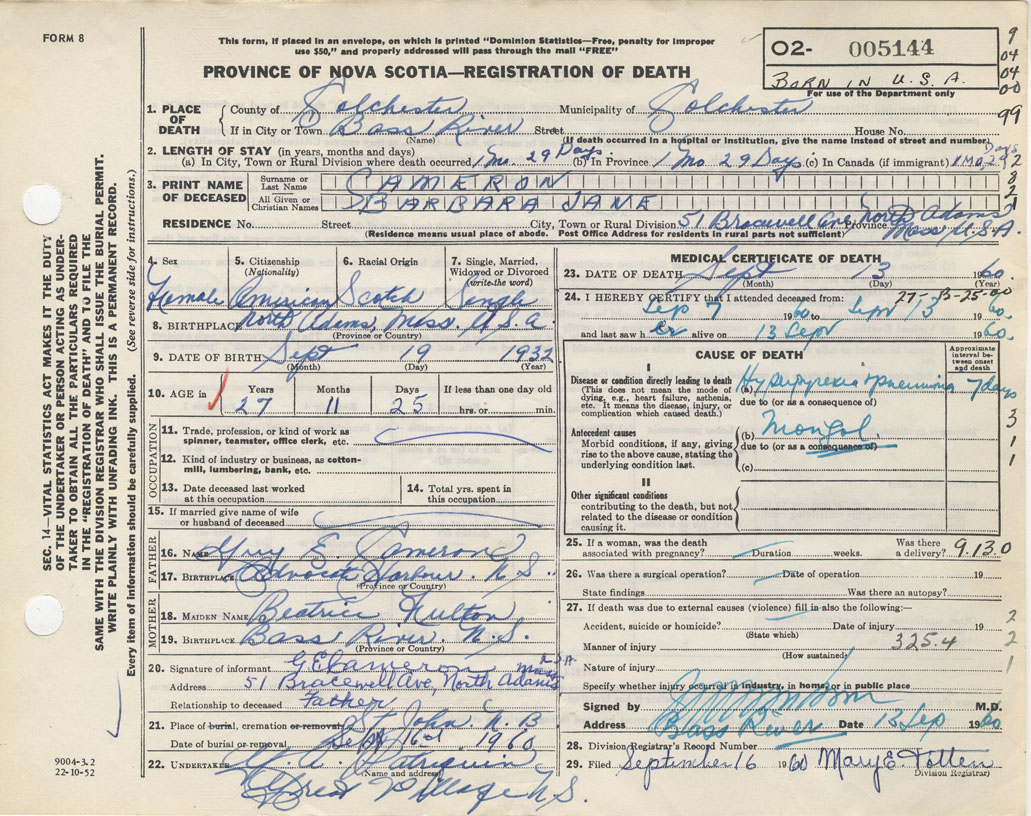 FORM 8
This form, if placed in an envelope, on which is printed "Dominion Statistics—Free, penalty for improper
use $50," and properly addressed will pass through the mail "FREE"
PROVINCE OF NOVA SCOTIA—REGISTRATION OF DEATH
02- 005144
BORN IN U.S.A.
For use of the Department only
9
04
04
00
99
1. PLACE OF DEATH County of Colchester Municipality of Colchester
If in City or Town Bass River Street House No.
(Name) (If death occurred in a hospital or Institution, give the name instead of street and number)
2. LENGTH OF STAY (in years, months and days)
(a) In City, Town or Rural Division where death occurred 1 Mo. 29 Days. (b) In Province 1 Mo 29 Days (c) In Canada (if immigrant) 1 Mo, 29 Days
3. PRINT NAME OF DECEASED
Surname or Last Name CAMERON
All Given or Christian Names BARBARA JANE
RESIDENCE No. Street City, Town or Rural Division 51 Bracewell Ave, North Adams Province Mass U.S.A.
(Residence means usual place of abode. Post Office Address for residents in rural parts not sufficient)
4. Sex
Female
5. Citizenship (Nationality)
American
6. Racial Origin
Scotch
7. Single, Married, Widowed or Divorced (write the word)
Single
8. BIRTHPLACE North Adams, Mass. U.S.A
(Province or Country)
9. DATE OF BIRTH Sept 19 1932
(Month) (Day) (Year)
10. AGE in Years Months Days If less than one day old
27 11 25 hrs. or min.
OCCUPATION
11. Trade, profession, or kind of work as spinner, teamster, office clerk, etc.
12. Kind of industry or business, as cotton-mill, lumbering, bank, etc.
13. Date deceased last worked at this occupation
14. Total yrs. spent in this occupation
15. If married give name of wife or husband of deceased
FATHER
16. Name Guy E. Cameron
17. Birthplace Advocate Harbour. N.S.
(Province or Country)
MOTHER
18. Maiden Name Beatrice Fulton
19. Birthplace Bass River. N.S.
(Province or Country)
20. Signature of informant G E Cameron
Address 51 Bracewell Ave, North Adams Mass U.S.A.
Relationship to deceased Father
21. Place of burial, cremation or removal St John N.B
Date of burial or removal Sept 16th 1960
22. Undertaker
(Name and address)
Great Village N.S.
MEDICAL CERTIFICATE OF DEATH
23. DATE OF DEATH Sept 13 1960.
(Month) (Day) (Year)
24. I HEREBY CERTIFY that I attended deceased from:
Sep 7 1960 to Sept 13 1960.
and last saw her alive on 13 Sept 1960.
CAUSE OF DEATH
Approximate interval between onset and death
I
Disease or condition directly leading to death
(This does not mean the mode of dying, e.g., heart failure, asthenia, etc. It means the disease, injury, or complication which caused death.)
(a) Hyperpyrexia & pneumonia 7 days
due to (or as a consequence of)
Antecedent causes
Morbid conditions, if any, giving rise to the above cause, stating the underlying condition last.
(b) Mongol.
due to (or as a consequence of)
(c)
3
1
1
II
Other significant conditions
contributing to the death, but not related to the disease or condition causing it.
25. If a woman, was the death associated with pregnancy? Duration weeks. Was there a delivery? 9.13 0
26. Was there a surgical operation? Date of operation 19
State findings Was there an autopsy?
27. If death was due to external causes (violence) fill in also the following:—
Accident, suicide or homicide? Date of injury 19
(State which)
Manner of injury 325.4
(How sustained)
Nature of injury
2
2
1
Specify whether injury occurred in industry, in home, or in public place
Signed by M.D.
Address Bass River Date 13 Sep 1960
28. Division Registrar's Record Number
29. Filed September 16 1960 Mary E. Totten
(Division Registrar)
SEC. 14—VITAL STATISTICS ACT MAKES IT THE DUTY
OF THE UNDERTAKER OR PERSON ACTING AS UNDER-
TAKER TO OBTAIN ALL THE PARTICULARS REQUIRED
IN THE "REGISTRATION OF DEATH" AND TO FILE THE
SAME WITH THE DIVISION REGISTRAR WHO SHALL ISSUE THE BURIAL PERMIT.
WRITE PLAINLY WITH UNFADING INK. THIS IS A PERMANENT RECORD.
Every item of information should be carefully supplied. (See reverse side for instructions.)
9004-3.2
22-10-52